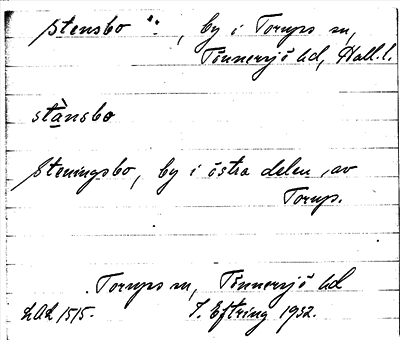 Stensbo ", by i Torups sn,
Tönnersjö hd, Hall.l.
stànsbo
Steningsbo, by i östra delen av
Torup.
Torups sn, Tönnersjö hd
LAL 1515. T. Eftring 1932.